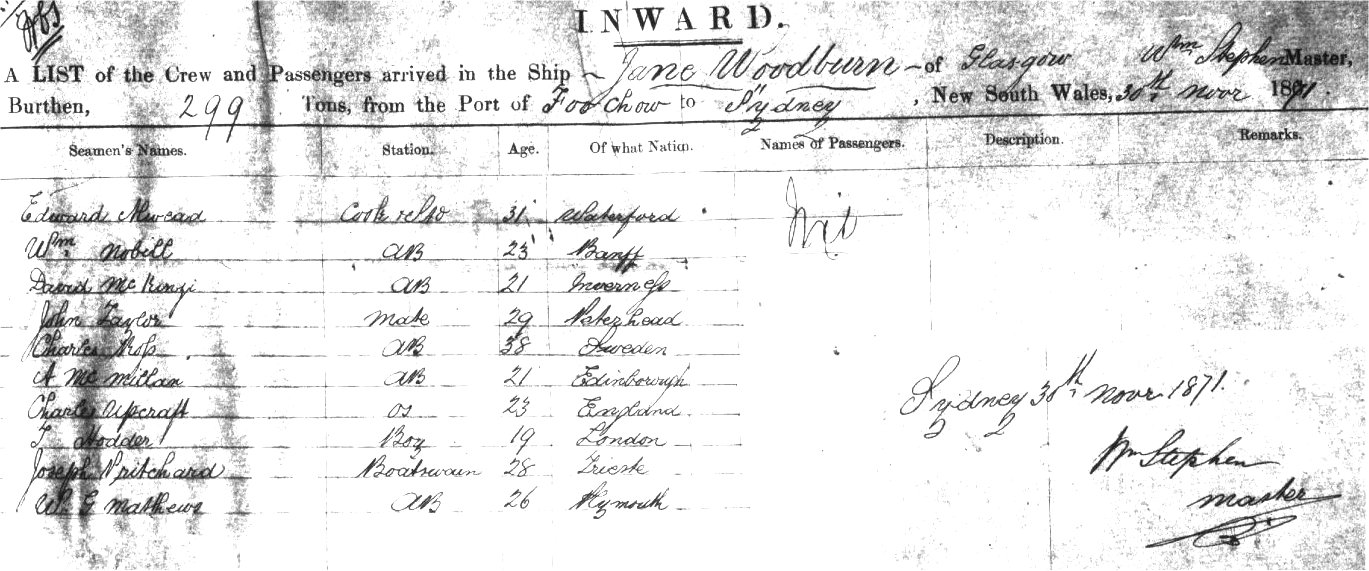 INWARD.
A LIST of the Crew and Passengers arrived in the Ship Jane Woodburn of Glasgow Wm Stephen Master,
Burthen, 299 Tons, from the Port of Foo Chow to Sydney, New South Wales, 30th Novr 1871.
Seamen's Names. Station. Age. Of what Nation. Names of Passengers. Description. Remarks.
Edward 31 Waterford Nil
Wm Nobell AB 23 Banff
David McKinzi AB 21 Inverness
John Taylor Mate 29 Peterhead
Charles Ross AB 38 Sweden
A McMillan AB 21 Edinborough
Charles Upcraft OS 23 England
T Hodder Boy 19 London
Joseph Pritchard Boatswain 28 Trieste
W. G Mathews AB 26 Plymouth
Sydney 30th Novr 1871.
Wm Stephen
master